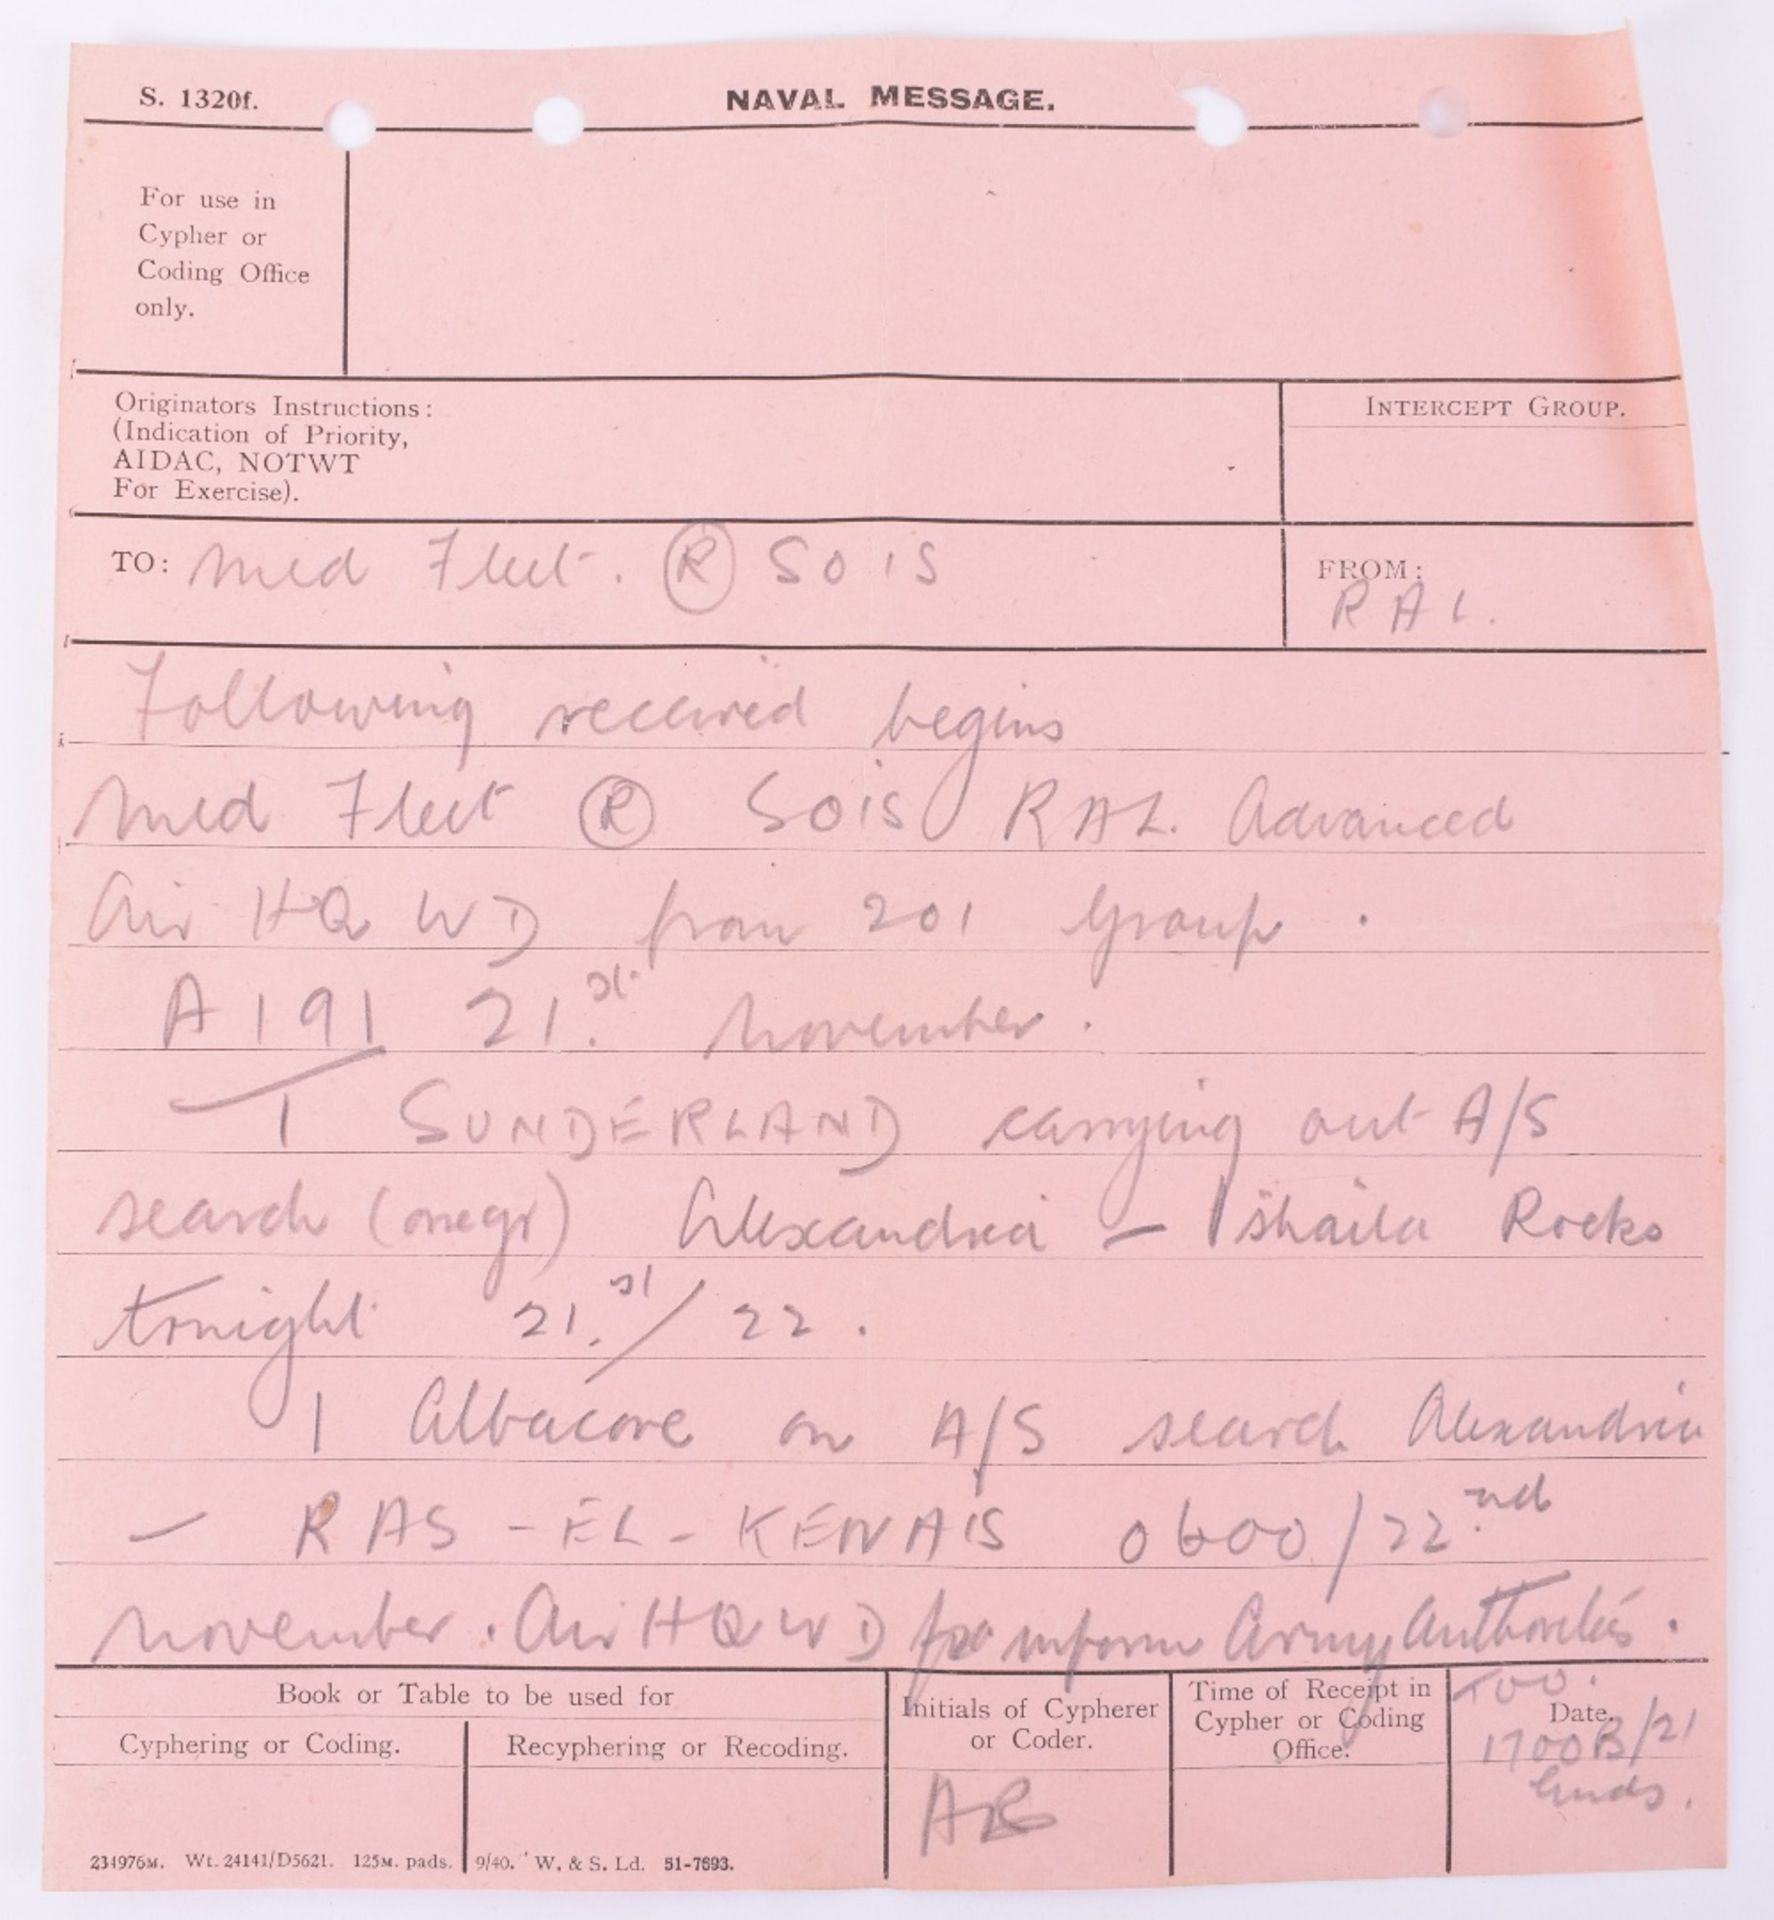 S. 1320f.
NAVAL MESSAGE.
For use in
Cypher or
Coding Office
only.
Originators Instructions:
(Indication of Priority,
AIDAC, NOTWT
For Exercise).
INTERCEPT GROUP.
TO: Med Fleet. (R) SOIS
FROM:
RAL.
Following received begins
Med Fleet (R) SOIS RAL. Advanced
Air HQ WD from 201 Group.
A191 21.st November.
1 SUNDERLAND carrying out A/S
search (onegr) Alexandria - Ishaila Rocks
tonight 21.st/22.
1 Albacore on A/S search Alexandria
- RAS-EL-KENAIS 0600/22.nd
November. Air HQ WD inform Army Authorities.
Book or Table to be used for
Cyphering or Coding.
Recyphering or Recoding.
Initials of Cypherer
or Coder.
Time of Receipt in
Cypher or Coding
Office.
TOO.
Date.
1700B/21
Ends.
234976M. Wt. 24141/D5621. 125M. pads. 9/40. W. & S. Ld. 51-7693.